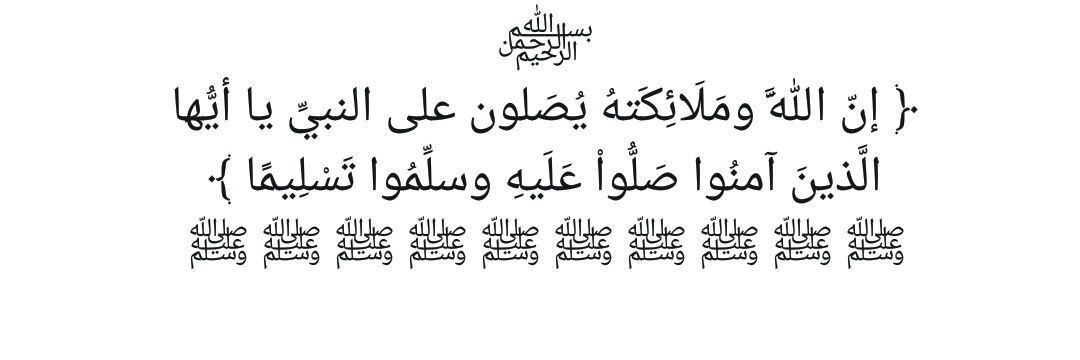 ﷽
﴿ إنّ اللهَّ ومَلَائِكَتهُ يُصَلون على النبيِّ يا أيُّها
الَّذينَ آمنُوا صَلُّواْ عَلَيهِ وسلِّمُوا تَسْلِيمًا ﴾
ﷺ ﷺ ﷺ ﷺ ﷺ ﷺ ﷺ ﷺ ﷺ ﷺ